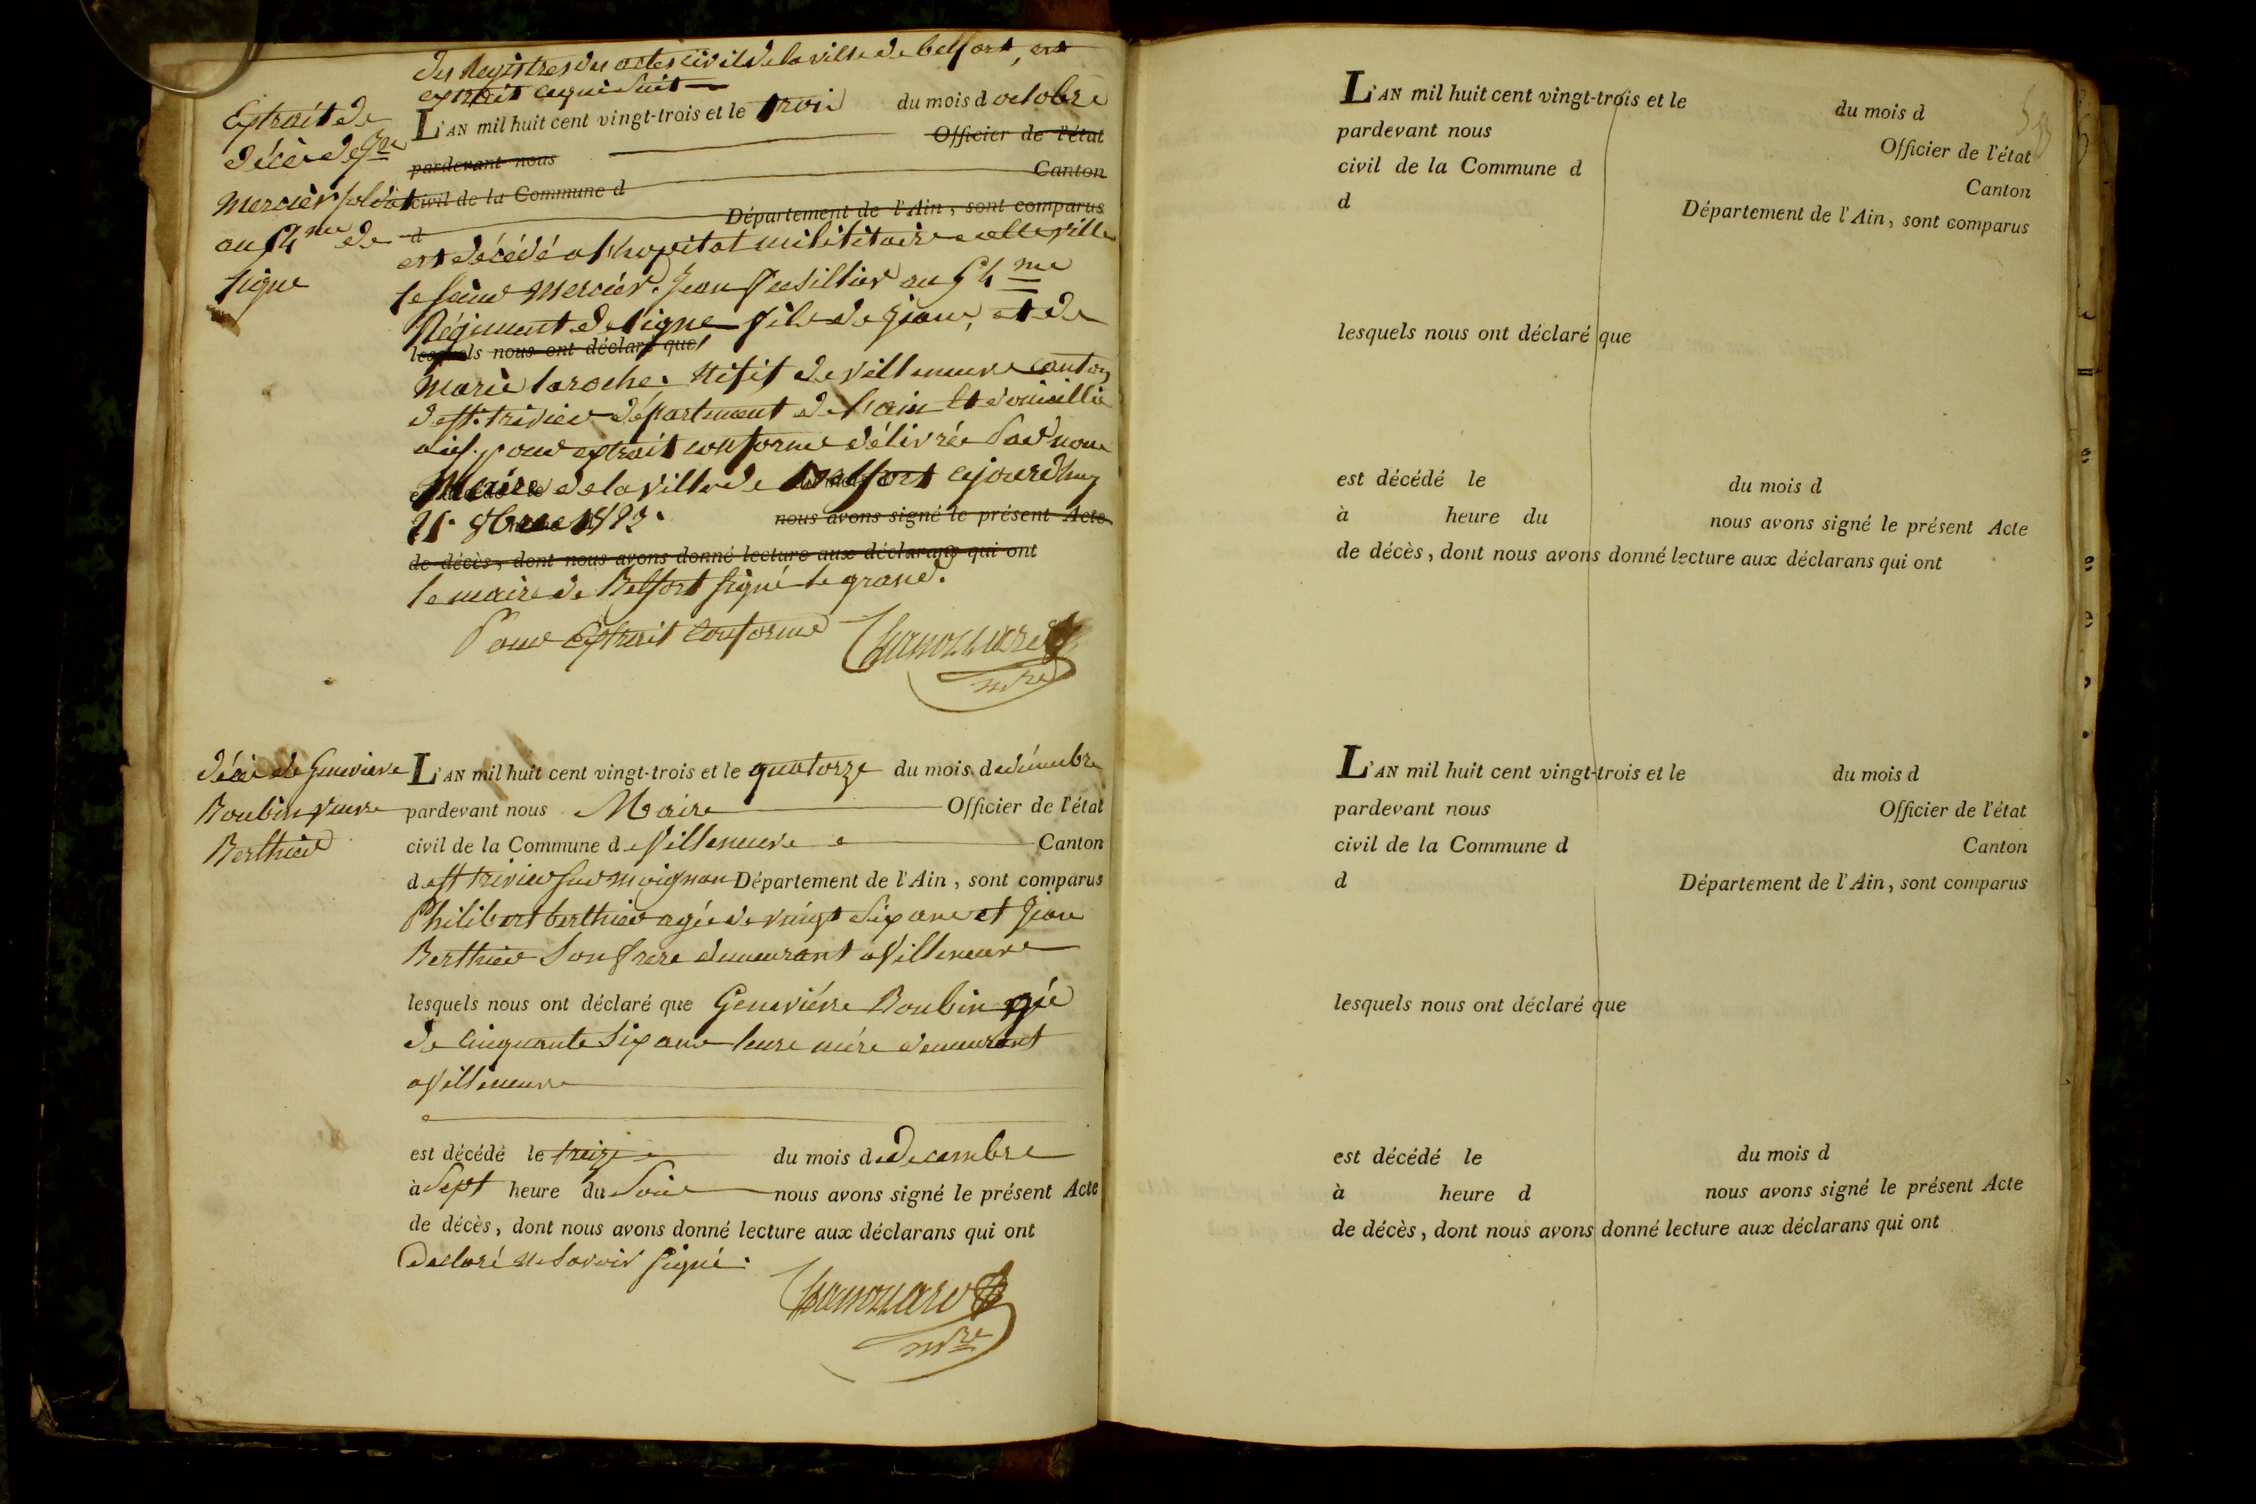 des Registres des actes civil de la ville de belfort, est
extrait ce qui suit
Extrait de
décè de Jn
Mercier soldat
au 54me de
ligne
L'AN mil huit cent vingt-trois et le trois du mois d octobre
pardevant nous Officier de l'état
civil de la Commune d Canton
d Département de l'Ain, sont comparus
est décédé a l'hopital milititaire
le sieur Mercier Jean fusillier au 54me
Régiment de ligne fils de Jean, et de
lesquels nous ont déclaré que
Marie laroche. Natif de Villeneuve canton
de st. trivier département de l'ain et
pour extrait conforme délivrée par nous
Maire de la ville de Belfort cejourdhuy
1823. nous avons signé le présent Acte
de décès, dont nous avons donné lecture aux déclarans qui ont
le maire de Belfort signé le grand.
Pour Extrait conforme
mre
décè de Genevieve
Boubin veuve
Berthier
L'AN mil huit cent vingt-trois et le quatorze du mois de décembre
pardevant nous Maire Officier de l'état
civil de la Commune de Villeneuve Canton
de st trivier sur moignan Département de l'Ain, sont comparus
Philibert berthier agée de vingt six ans et Jean
Berthier son frere demeurant a Villeneuve
lesquels nous ont déclaré que Geneviéve Boubin agée
de cinquante six ans leure mére demeurant
a Villeneuve
est décédé le treize du mois de Decembre
à Sept heure du Soir nous avons signé le présent Acte
de décès, dont nous avons donné lecture aux déclarans qui ont
declaré ne savoir signé.
mre
L'AN mil huit cent vingt-trois et le du mois d
pardevant nous Officier de l'état
civil de la Commune d Canton
d Département de l'Ain, sont comparus
lesquels nous ont déclaré que
est décédé le du mois d
à heure du nous avons signé le présent Acte
de décès, dont nous avons donné lecture aux déclarans qui ont
L'AN mil huit cent vingt-trois et le du mois d
pardevant nous Officier de l'état
civil de la Commune d Canton
d Département de l'Ain, sont comparus
lesquels nous ont déclaré que
est décédé le du mois d
à heure d nous avons signé le présent Acte
de décès, dont nous avons donné lecture aux déclarans qui ont